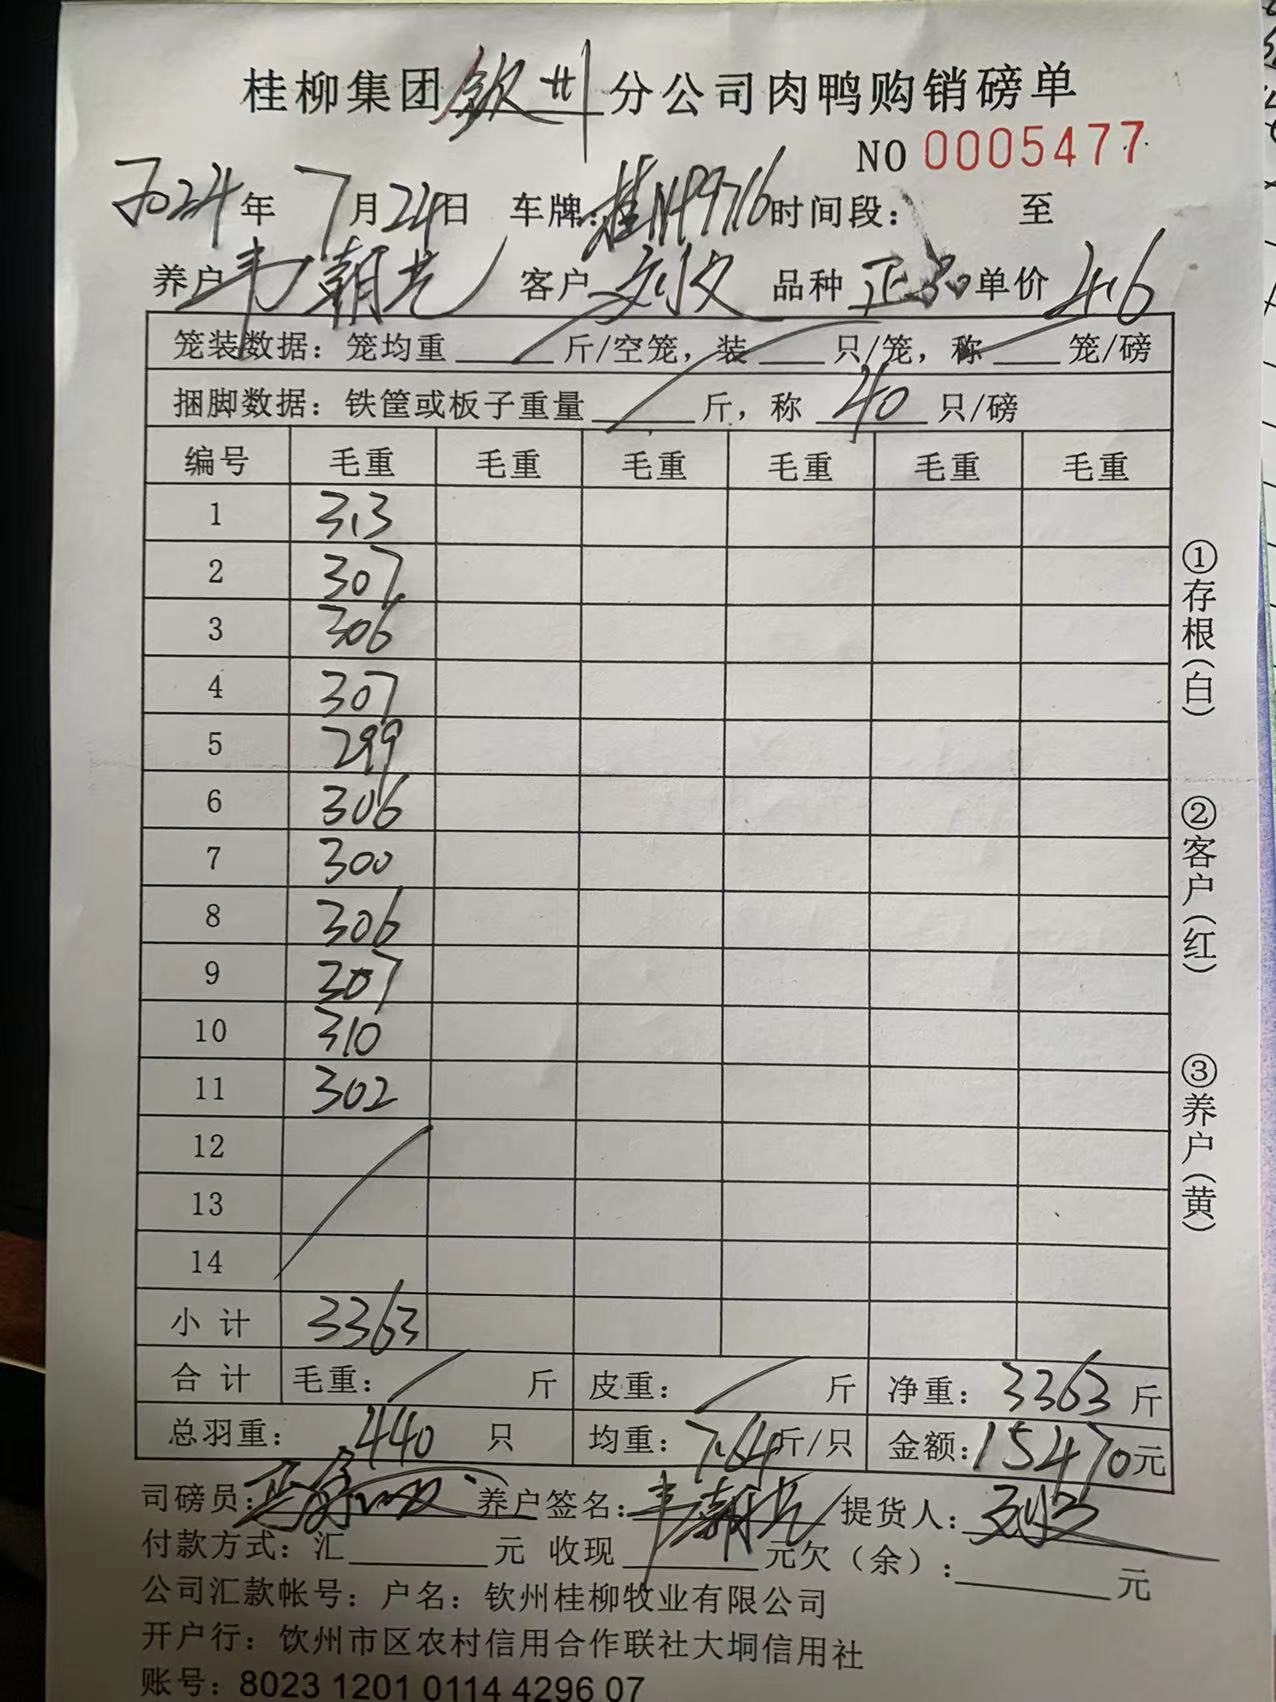 桂柳集团钦州分公司肉鸭购销磅单
NO 0005477
2024年 7月24日 车牌:桂NP9716 时间段: 至
养户 韦朝光 客户 刘文 品种 正品 单价 4.6
笼装数据:笼均重 / 斤/空笼,装 / 只/笼,称 / 笼/磅
捆脚数据:铁筐或板子重量 / 斤,称 40 只/磅
编号 毛重 毛重 毛重 毛重 毛重 毛重
1 313
2 307
3 306
4 307
5 299
6 306
7 300
8 306
9 307
10 310
11 302
12
13
14
小计 3363
合计 毛重: / 斤 皮重: / 斤 净重: 3363 斤
总羽重: 440 只 均重: 7.64 斤/只 金额: 15470元
司磅员: 养户签名:韦朝光 提货人:刘文
付款方式:汇 元 收现 元欠(余): 元
公司汇款帐号:户名:钦州桂柳牧业有限公司
开户行:饮州市区农村信用合作联社大垌信用社
账号:8023 1201 0114 4296 07
①存根(白)
②客户(红)
③养户(黄)